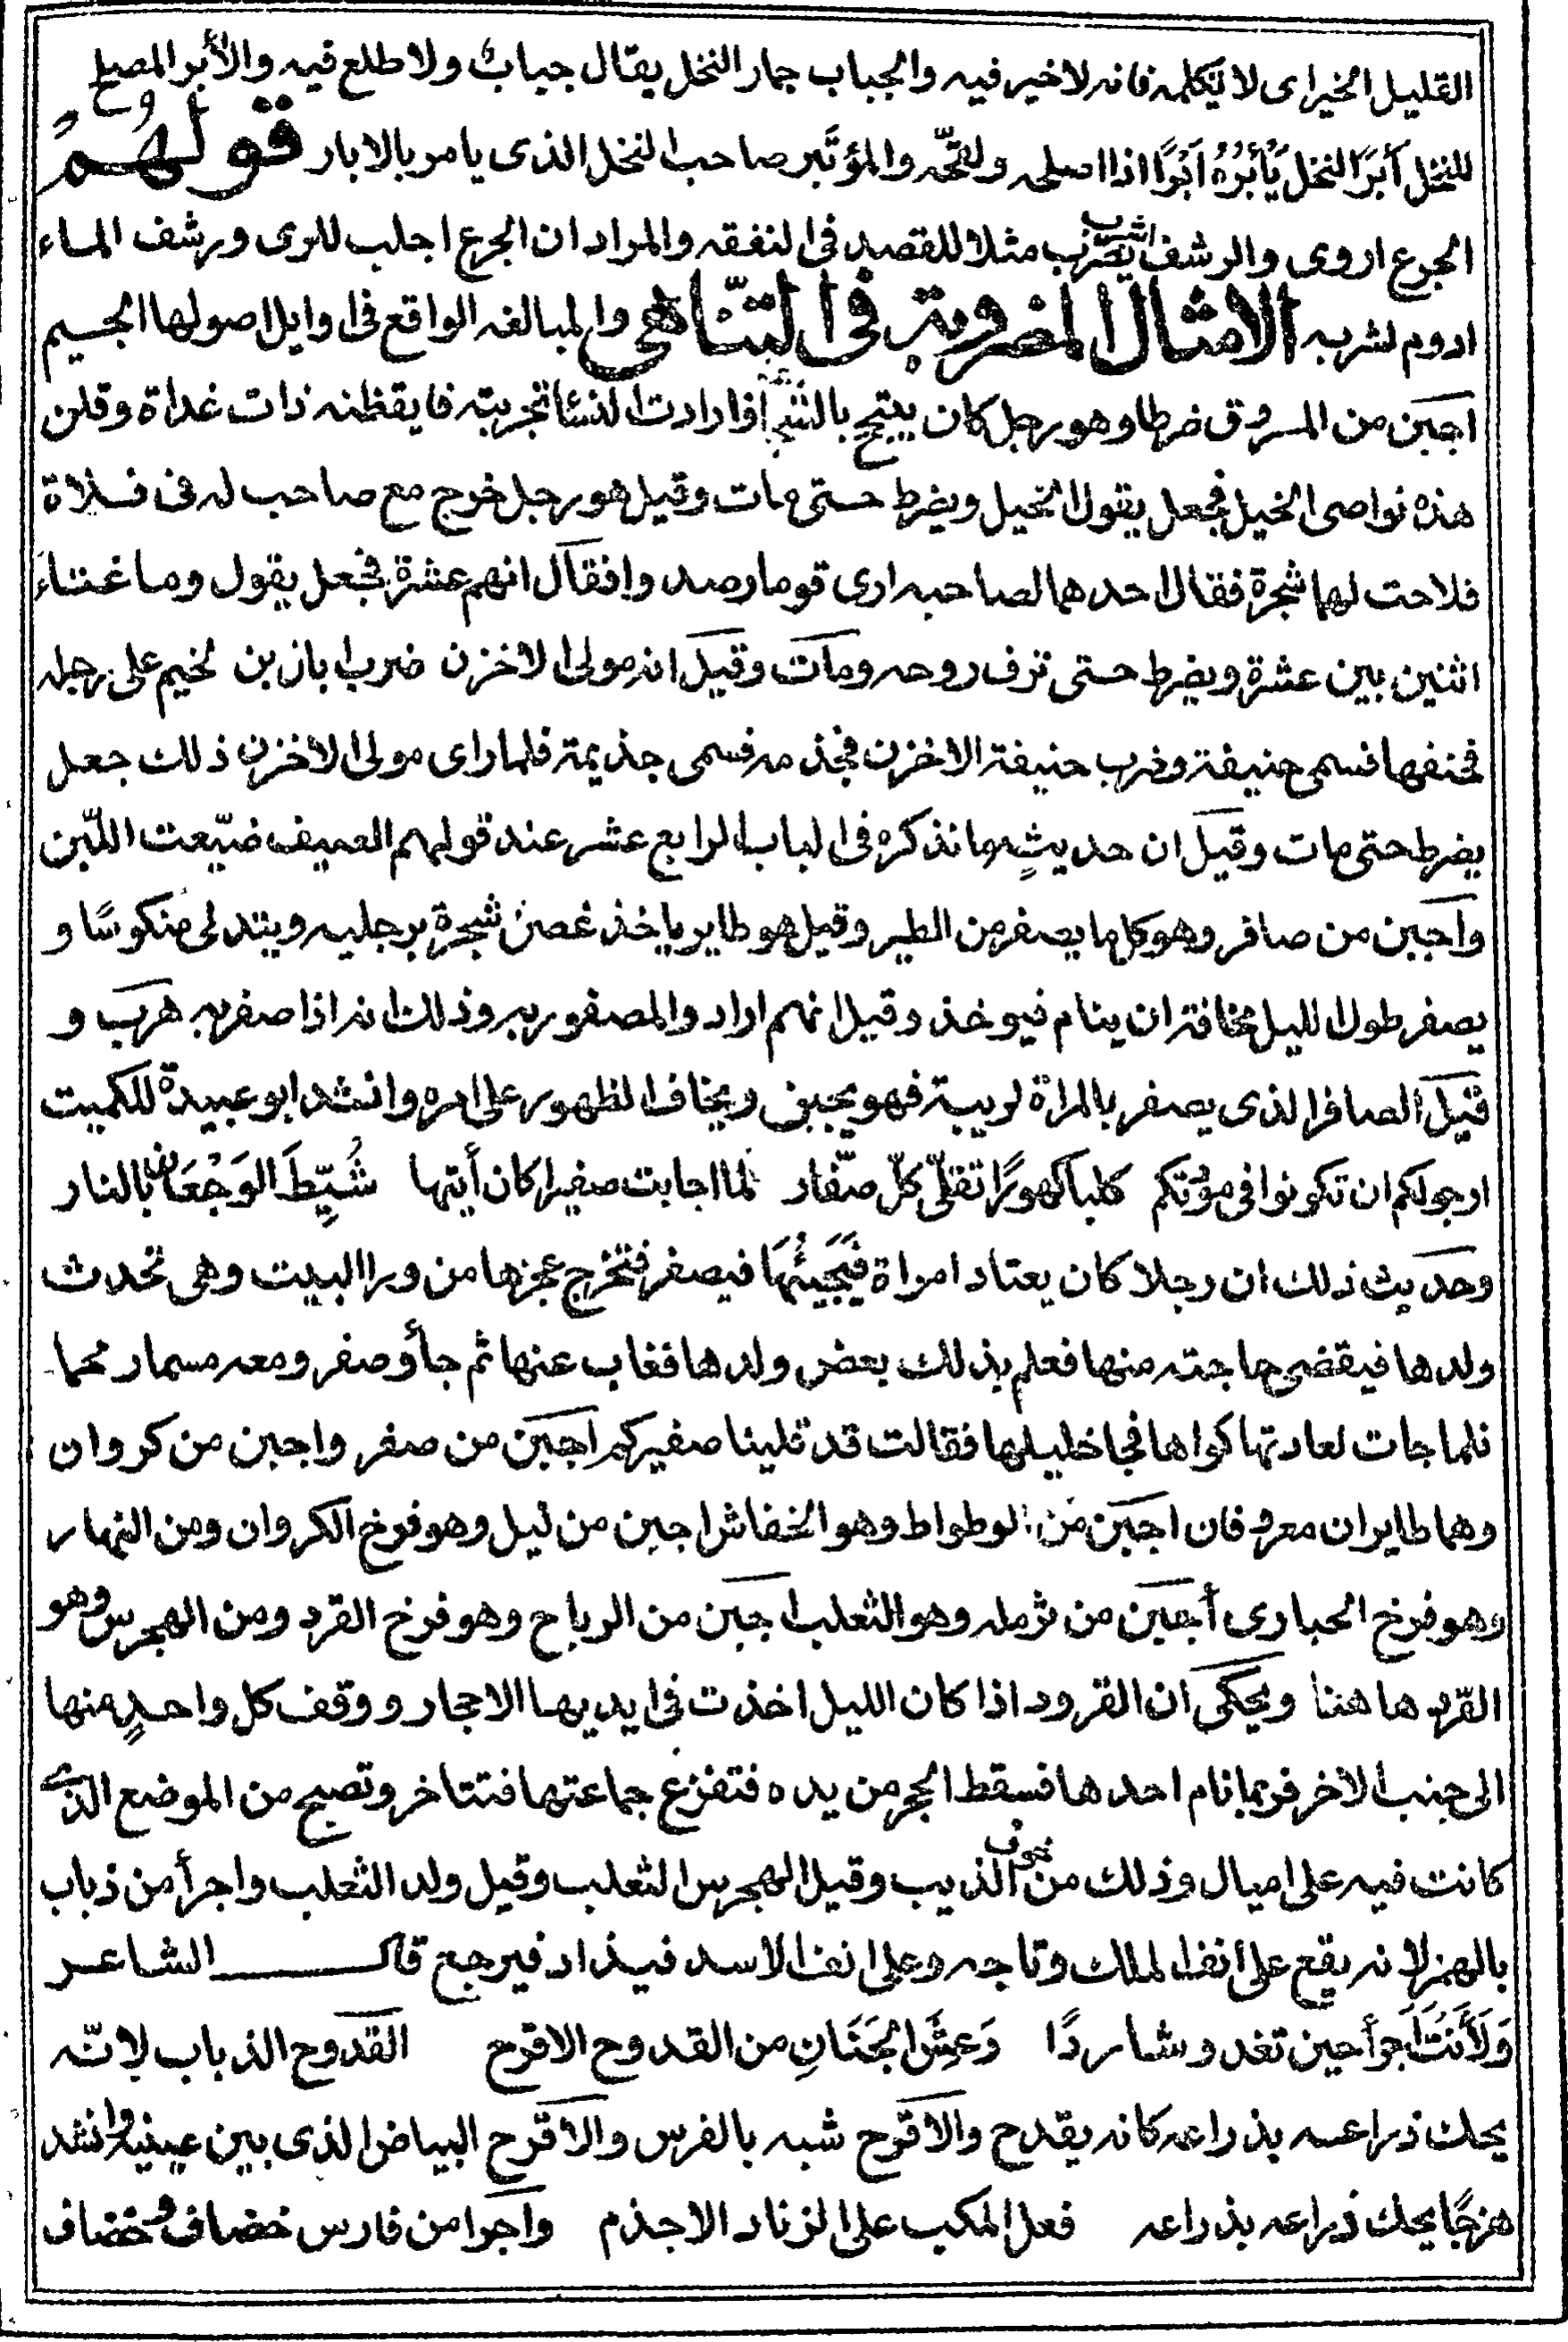 القليل الخير اى لا تكلمه فانه لا خير فيه والجباب جمار النخل يقال جباب ولا طلع فيه والأبر المصلح
للنخل أَبَرَ النخل يَأْبُرُهُ اَبْرًا اذا اصلحه ولقّحه والمؤتَبِر صاحب النخل الذى يامر بالابار قولهُم
الجرع اروى والرشف اشرب يضرب مثلا للقصد فى النفقه والمراد ان الجرع اجلب للرى ورشف الماء
ادوم لشربه الامثال المضروبة فى التّناهى والمبالغه الواقع فى اوايل اصولها الجيم
اجبن من المنزوف ضرطا وهو رجل كان يتبجح بالشجاعة فارادت النسا تجربته فايقظنه ذات غداة وقلن
هذه نواصى الخيل فجعل يقول الخيل ويضرط حتى مات وقيل هو رجل خرج مع صاحب له فى فلاة
فلاحت لهما شجرة فقال احدهما لصاحبه ارى قوما رصدوا فقال انهم عشرة فجعل يقول وما غناء
اثنين بين عشرة ويضرط حتى نزف روحه ومات وقيل انه مولى الاخزن ضرب ابان بن لخيم على رجله
فحنفها فسمى حنيفة وضرب حنيفة الاخزن فجذمه فسمى جذيمة فلما راى مولى الاخزن ذلك جعل
يضرط حتى مات وقيل ان حديثه ما نذكره فى الباب الرابع عشر عند قولهم الصيف ضيّعت اللّبن
واجبن من صافر وهو كل ما يصفر من الطير وقيل هو طاير ياخذ غصن شجرة برجليه ويتدلى منكوسًا و
يصفر طول الليل مخافة ان ينام فيوخذ وقيل انهم ارادوا المصفور به وذلك انه اذا صفر به هرب و
قيل الصافر الذى يصفر بالمراة لريبة فهو يجبن ويخاف الظهور على امره وانشد ابو عبيدة للكميت
ارجو لكم ان تكونوا فى مودتكم كلبا كهورًا تقلّى كلّ صفّار لما اجابت صفيرا كان أيتها شُيِّطَ الوَجْعَان بالنار
وحديث ذلك ان رجلا كان يعتاد امراة فَيَجِيئُهَا فيصفر فتخرج عجزها من ورا البيت وهى تحدث
ولدها فيقضى حاجته منها فعلم بذلك بعض ولدها فغاب عنها ثم جأ وصفر ومعه مسمار محما
فلما جات لعادتها كواها فجا خليلها فقالت قد قلينا صفيركم اجبن من صفر واجبن من كروان
وهما طايران معروفان اجبن من الوطواط وهو الخفاش اجبن من ليل وهو فرخ الكروان ومن النهار
وهو فرخ الحبارى أجبن من ثرمله وهو الثعلب اجبن من الرباح وهو فرخ القرد ومن الهجرس وهو
القرد هاهنا ويحكى ان القرود اذا كان الليل اخذت فى ايديها الاحجار ووقف كل واحدٍ منها
الى جنب الاخر فربما نام احدها فسقط الحجر من يده فتفزع جماعتها فتتاخر وتصبح من الموضع الذى
كانت فيه على اميال وذلك من خوف الذيب وقيل الهجرس الثعلب وقيل ولد الثعلب واجرأ من ذباب
بالهمز لانه يقع على أنف الملك وتاجه وعلى انف الاسد فيذاد فيرجع قال الشاعر
وَلَأَنتَ اَجرأ حين تغدو شاردًا وَعِشَ الجَنَانِ من القدوح الاقرح القدوح الذباب لانّه
يحك ذراعه بذراعه كانه يقدح والاقرح شبه بالفرس والاقرح البياض الذى بين عينيه وانشد
هزجًا يحك ذراعه بذراعه فعل المكب على الزناد الاجذم واجرا من فارس خضاف وخضاف